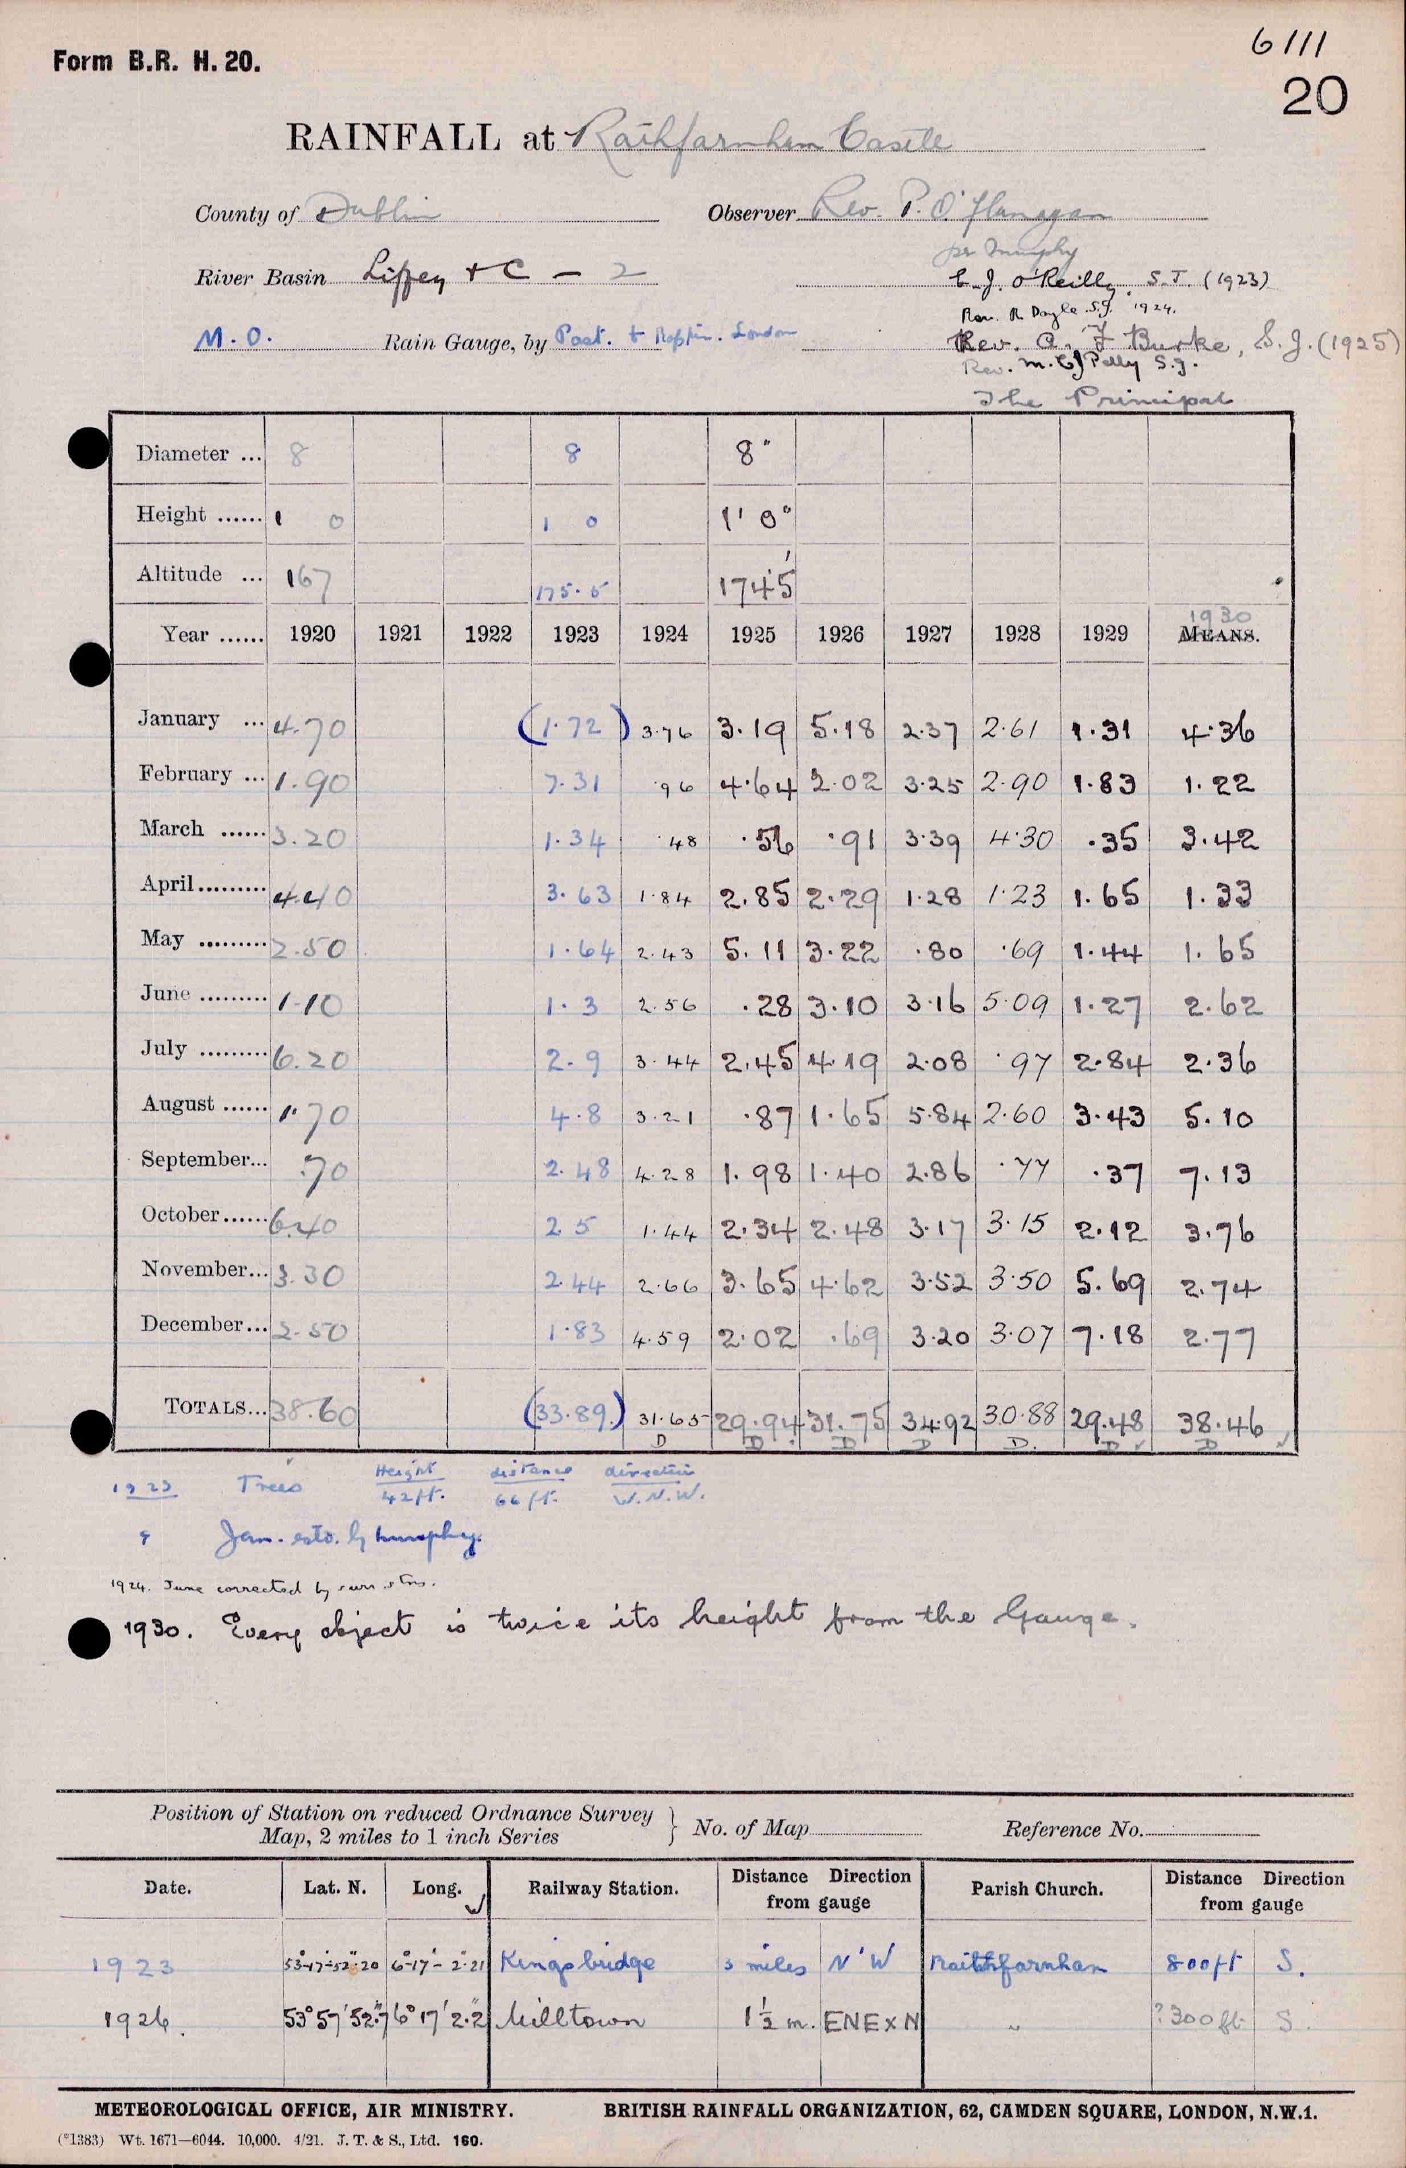 Form B.R. H. 20.
6111
20
RAINFALL at Rathfarnham Castle
County of Dublin Observer Rev. P. O'Flanagan
per Murphy
River Basin Liffey + C — 2 C. J. O'Reilly, S.J. (1923)
Rev. R. Doyle S.J. 1924.
M.O. Rain Gauge, by Past. London Rev. A. F Burke, S.J. (1925)
Rev. M. Pelly S.J.
The Principal
Diameter ... 8 8 8"
Height ...... 1 0 1 0 1' 0"
Altitude ... 167 175.5 174.5'
Year ...... 1920 1921 1922 1923 1924 1925 1926 1927 1928 1929 MEANS. 1930
January ... 4.70 (1.72) 3.76 3.19 5.18 2.37 2.61 1.31 4.36
February ... 1.90 7.31 .96 4.64 2.02 3.25 2.90 1.83 1.22
March ...... 3.20 1.34 .48 .56 .91 3.39 4.30 .35 3.42
April ......... 4.40 3.63 1.84 2.85 2.29 1.28 1.23 1.65 1.33
May ......... 2.50 1.64 2.43 5.11 3.22 .80 .69 1.44 1.65
June ......... 1.10 1.3 2.56 .28 3.10 3.16 5.09 1.27 2.62
July ......... 6.20 2.9 3.44 2.45 4.19 2.08 .97 2.84 2.36
August ...... 1.70 4.8 3.21 .87 1.65 5.84 2.60 3.43 5.10
September... .70 2.48 4.28 1.98 1.40 2.86 .77 .37 7.13
October...... 6.40 2.5 1.44 2.34 2.48 3.17 3.15 2.12 3.76
November... 3.30 2.44 2.66 3.65 4.62 3.52 3.50 5.69 2.74
December... 2.50 1.83 4.59 2.02 .69 3.20 3.07 7.18 2.77
TOTALS... 38.60 (33.89) 31.65 29.94 31.75 34.92 30.88 29.48 38.46
D D D D D D D
1923 Trees Height 42 ft. distance 66 ft. direction W.N.W.
" Jan. estd. by Murphy.
1924. June corrected by surr stns.
1930. Every object is twice its height from the Gauge.
Position of Station on reduced Ordnance Survey
Map, 2 miles to 1 inch Series } No. of Map Reference No.
Date. Lat. N. Long. Railway Station. Distance Direction from gauge Parish Church. Distance Direction from gauge
1923 53°-17'-52".20 6°-17'-2".21 Kingsbridge 3 miles N'W Raithfarnham 800ft S.
1926. 53°57'52".7 6°17'2".2 Milltown 1½ m. ENE x N " ?300 ft. S.
METEOROLOGICAL OFFICE, AIR MINISTRY. BRITISH RAINFALL ORGANIZATION, 62, CAMDEN SQUARE, LONDON, N.W.1.
(*1383) Wt. 1671—6044. 10,000. 4/21. J. T. & S., Ltd. 160.